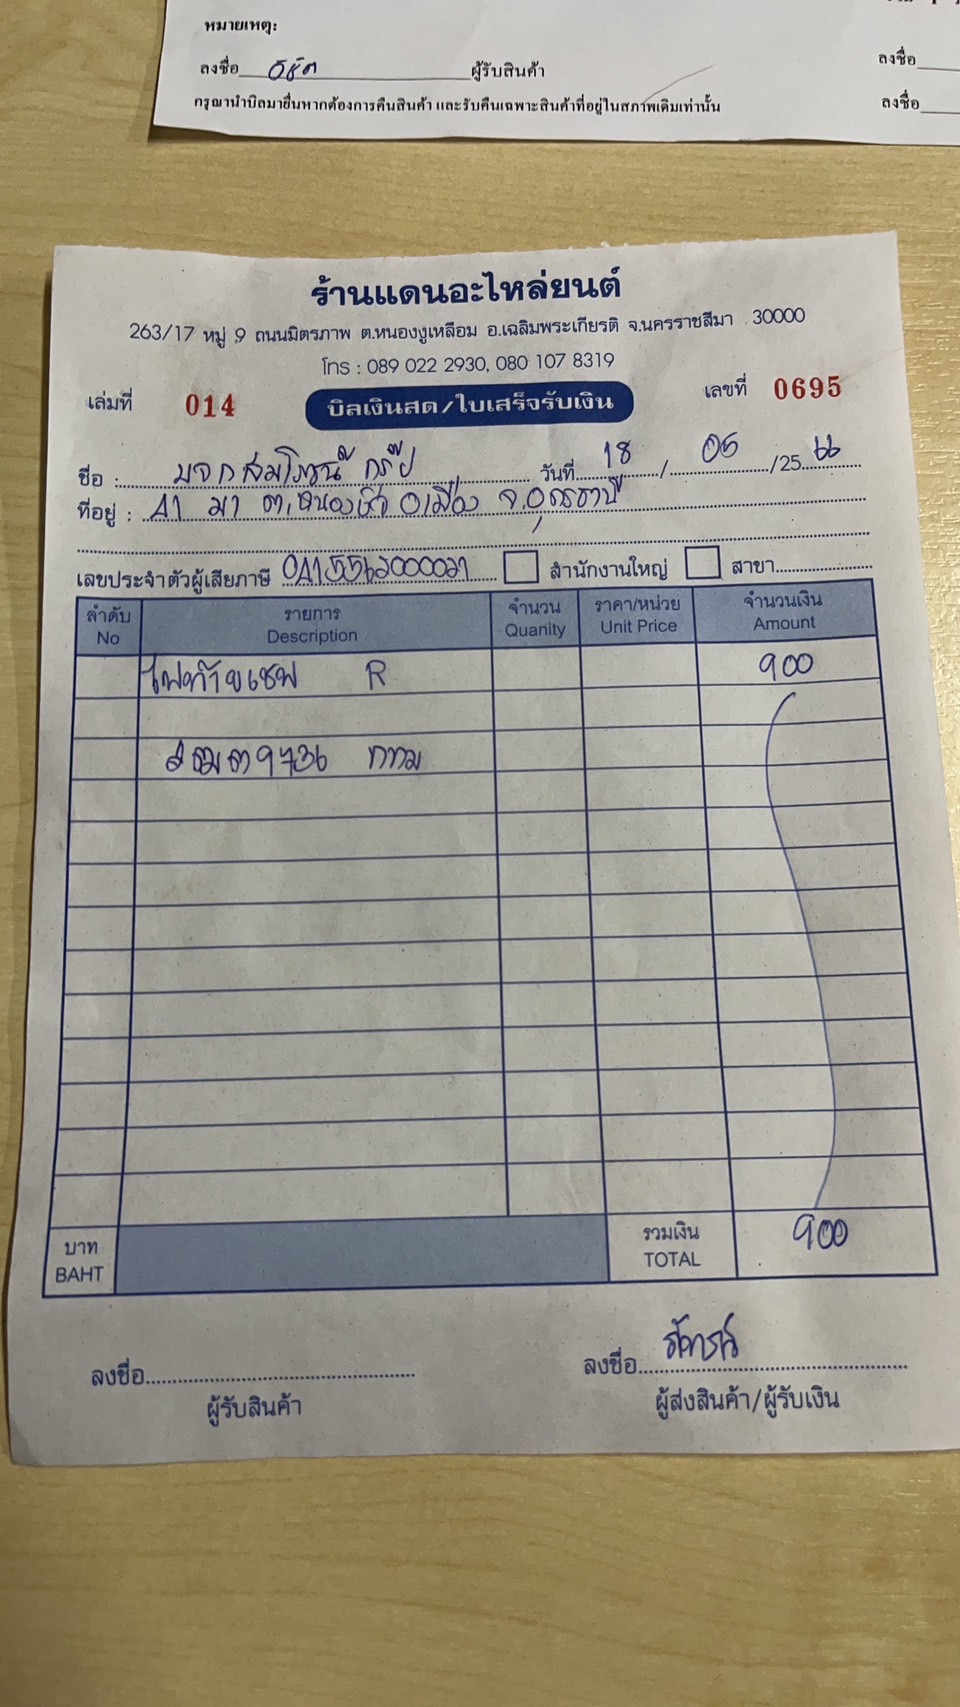 หมายเหตุ:
ลงชื่อ ผู้รับสินค้า ลงชื่อ
กรุณานำบิลมายื่นหากต้องการคืนสินค้า และรับคืนเฉพาะสินค้าที่อยู่ในสภาพเดิมเท่านั้น ลงชื่อ
ร้านแดนอะไหล่ยนต์
263/17 หมู่ 9 ถนนมิตรภาพ ต.หนองงูเหลือม อ.เฉลิมพระเกียรติ จ.นครราชสีมา 30000
โทร : 089 022 2930, 080 107 8319
เล่มที่ 014 บิลเงินสด/ใบเสร็จรับเงิน เลขที่ 0695
ชื่อ : มจก สมโภชน์ กรุ๊ป วันที่ 18 / 06 /25 66
ที่อยู่ : ต.หนองบัว อ.เมือง จ.อุดรธานี
เลขประจำตัวผู้เสียภาษี 0415562000021 สำนักงานใหญ่ สาขา
ลำดับ รายการ จำนวน ราคา/หน่วย จำนวนเงิน
No Description Quanity Unit Price Amount
ไฟท้ายเชฟ R 900
9736 กทม
บาท รวมเงิน 900
BAHT TOTAL
ลงชื่อ ลงชื่อ
ผู้รับสินค้า ผู้ส่งสินค้า/ผู้รับเงิน